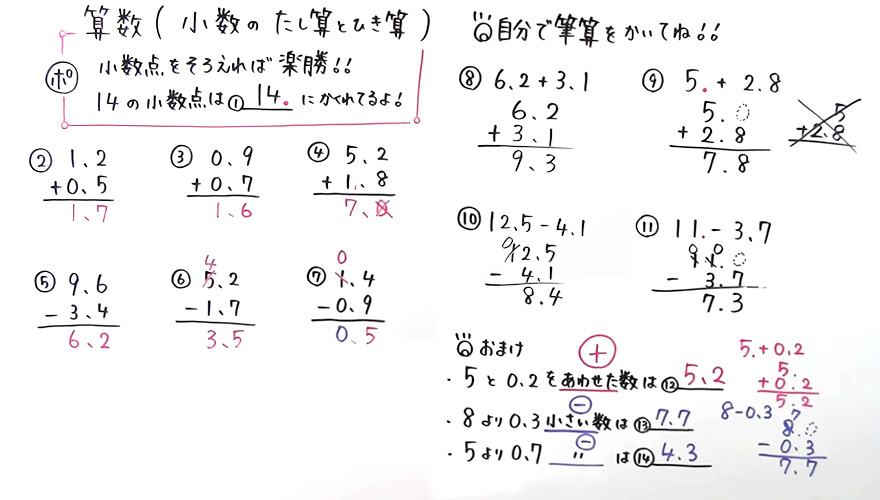 算数(小数のたし算とひき算)
ポ 小数点をそろえれば楽勝!!
14の小数点は① 14. にかくれてるよ!
② 1.2
+0.5
1.7
③ 0.9
+0.7
1.6
④ 5.2
+1.8
7.0
⑤ 9.6
-3.4
6.2
⑥ 4
5.2
-1.7
3.5
⑦ 0
1.4
-0.9
0.5
自分で筆算をかいてね!!
⑧ 6.2+3.1
6.2
+3.1
9.3
⑨ 5.+2.8
5.0
+2.8
7.8
5
+2.8
⑩ 12.5-4.1
0
12.5
-4.1
8.4
⑪ 11.-3.7
0 0
11.0
-3.7
7.3
おまけ
+
・5と0.2をあわせた数は⑫ 5.2
5.+0.2
5.
+0.2
5.2
-
・8より0.3小さい数は⑬ 7.7
8-0.3
7
8.0
-0.3
7.7
-
・5より0.7 〃 は⑭ 4.3